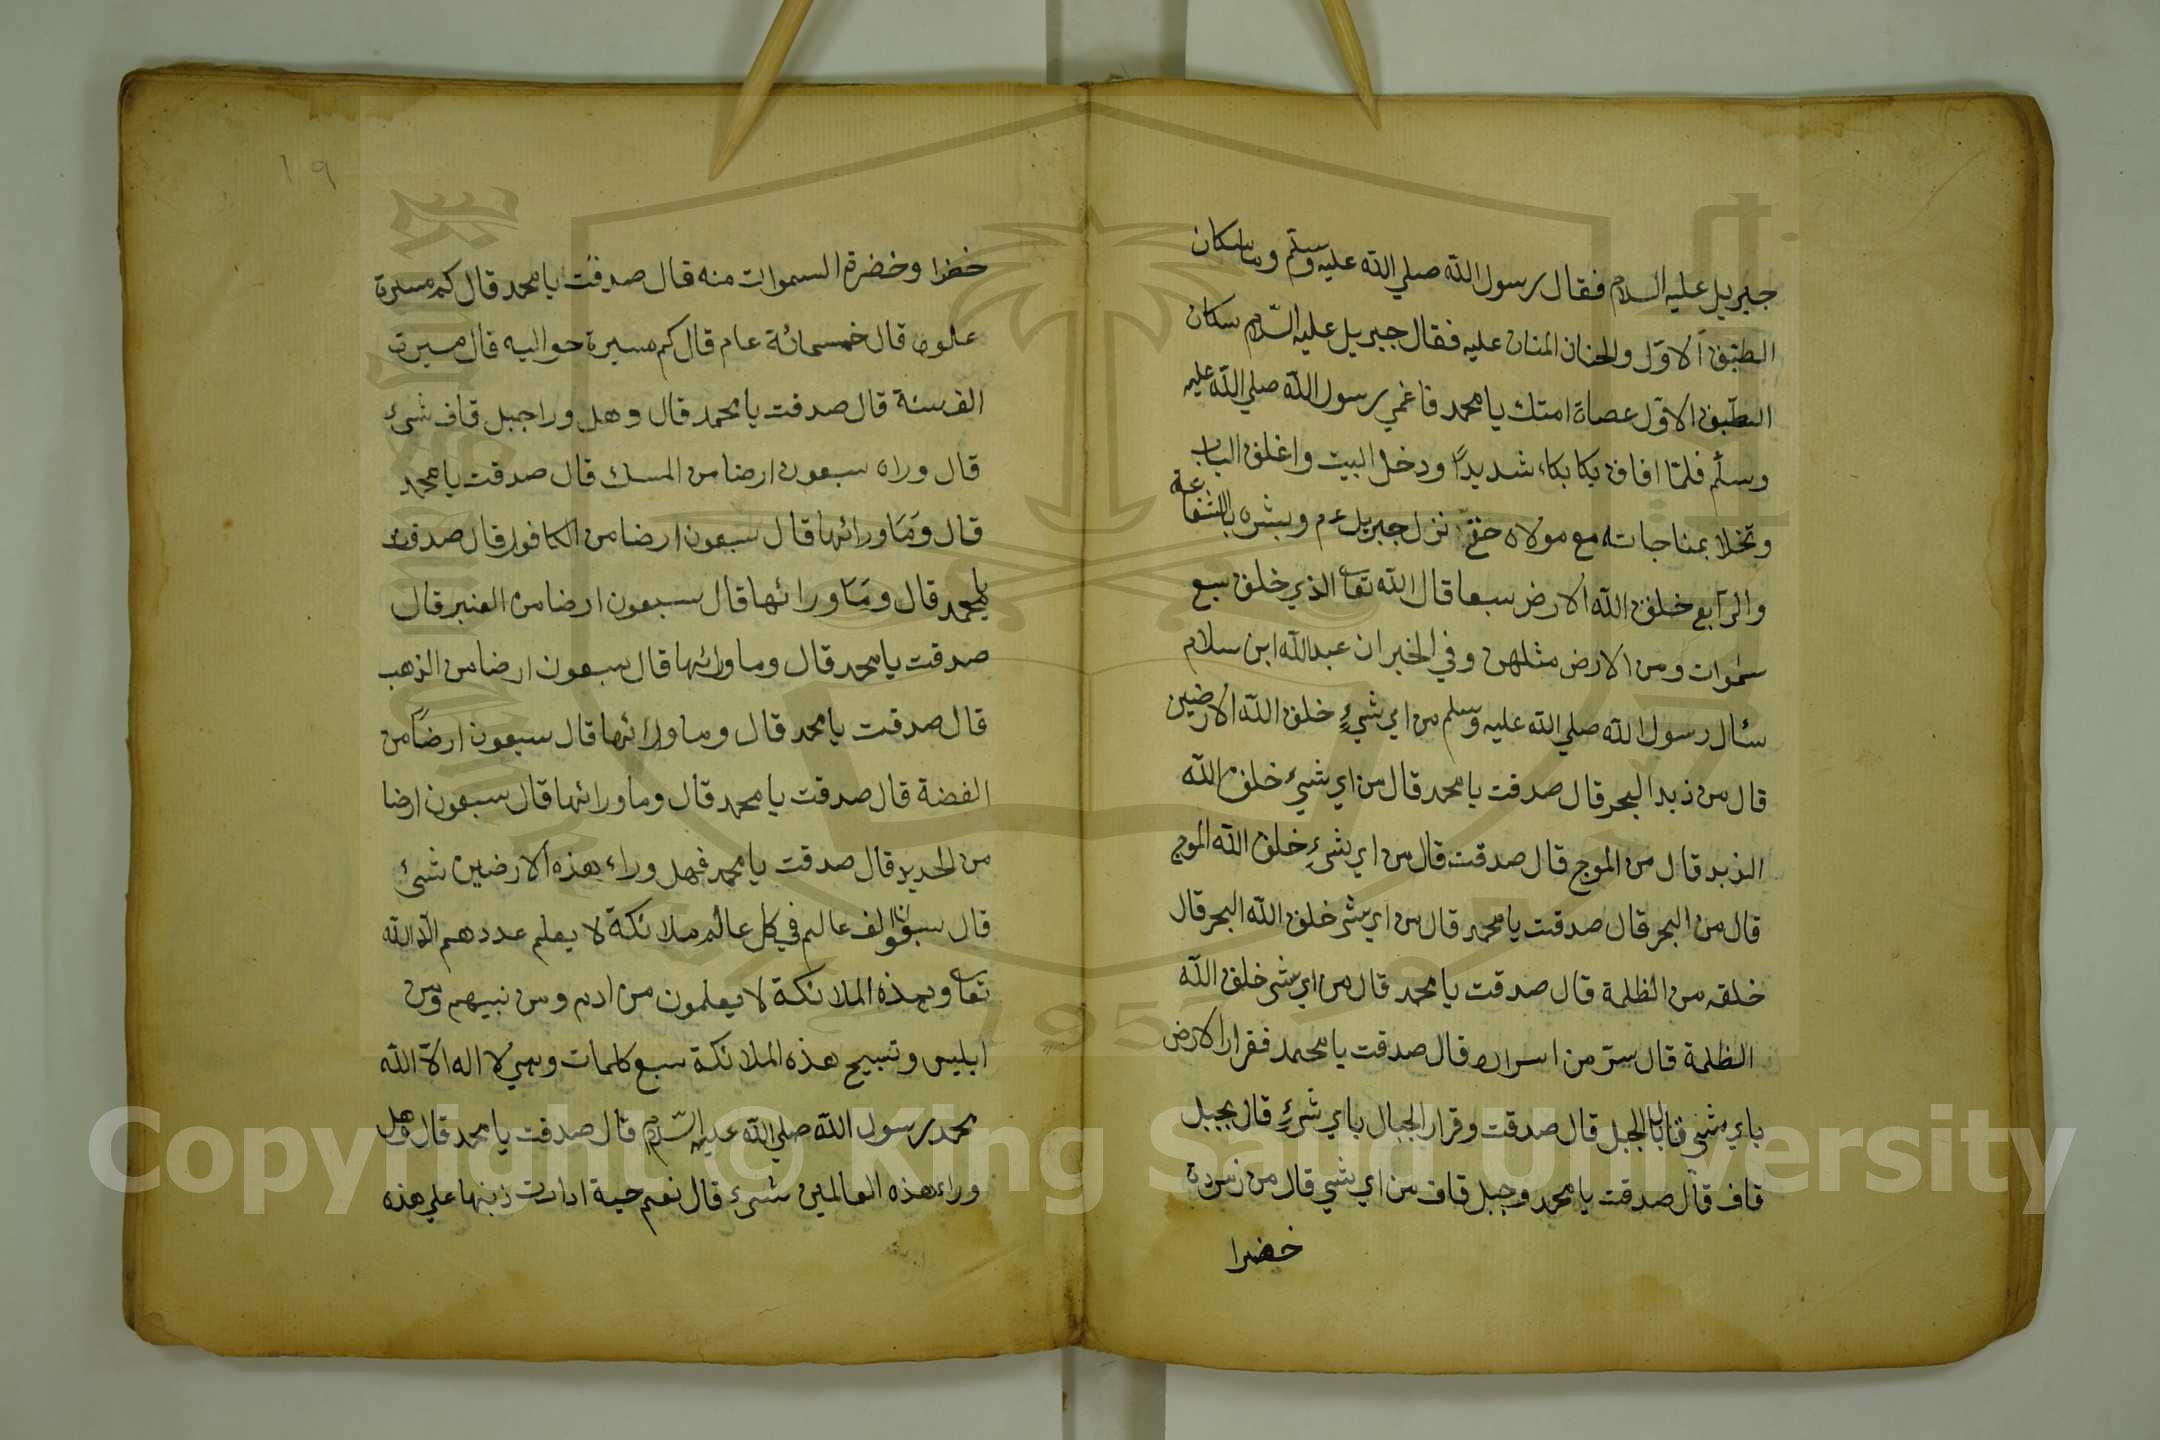 جبريل عليه السلام فقال رسول الله صلي الله عليه وسلم وما سكان
الطبق الاوّل والحنان المنان عليه فقال جبريل عليه السّلام سكان
الطبق الاوّل عصاة امتك يا محمد فاغمي رسول الله صلي الله عليه
وسلّم فلمّا افاق بكا بكاء شديدًا ودخل البيت واغلق الباب
وتخلا بمناجاته مع مولاه حتّي نزل جبريل عم وبشره بالشفاعة
والرّابع خلق الله الارض سبعا قال الله تعا الذي خلق سبع
سموات ومن الارض مثلهن وفي الخبر ان عبد الله ابن سلام
سئال رسول الله صلي الله عليه وسلم من اي شيءٍ خلق الله الارضين
قال من زبد البحر قال صدقت يا محمد قال من اي شيء خلق الله
الزبد قال من الموج قال صدقت قال من اي شيءٍ خلق الله الموج
قال من البحر قال صدقت يا محمد قال من اي شي خلق الله البحر قال
خلقه من الظلمة قال صدقت يا محمد قال من اي شي خلق الله
الظلمة قال سرّ من اسراره قال صدقت يا محمد فقرار الارض
باي شي قال بالجبل قال صدقت وقرار الجبال باي شيءٍ قال بجبل
قاف قال صدقت يا محمد وجبل قاف من اي شي قال من زمردة
خضرا
١٩
خضرا وخضرة السموات منه قال صدقت يا محمد قال كم مسيرة
علوه قال خمسمائة عام قال كم مسيرة حواليه قال مسيرة
الف سنة قال صدقت يا محمد قال وهل ورا جبل قاف شيء
قال وراه سبعون ارضا من المسك قال صدقت يا محمد
قال وَمَا ورائها قال سبعون ارضا من الكافور قال صدقت
يا محمد قال ومَا ورائها قال سبعون ارضا من العنبر قال
صدقت يا محمد قال وما ورائها قال سبعون ارضا من الذهب
قال صدقت يا محمد قال وما ورائها قال سبعون ارضًا من
الفضة قال صدقت يا محمد قال وما ورائها قال سبعون ارضا
من الحديد قال صدقت يا محمد فهل وراء هذه الارضين شيء
قال سبعون الف عالم في كل عالم ملائكة لا يعلم عددهم الّا الله
تعا وبهذه الملائكة لا يعلمون من ادم ومن نبيهم ومن
ابليس وتسبيح هذه الملائكة سبع كلمات وهي لا اله الّا الله
محمد رسول الله صلي الله عليه السّلام قال صدقت يا محمد قال وهل
وراء هذه العالمين شيء قال نعم حية ادارت ذنبها علي هذه
Copyright © King Saud University
1957